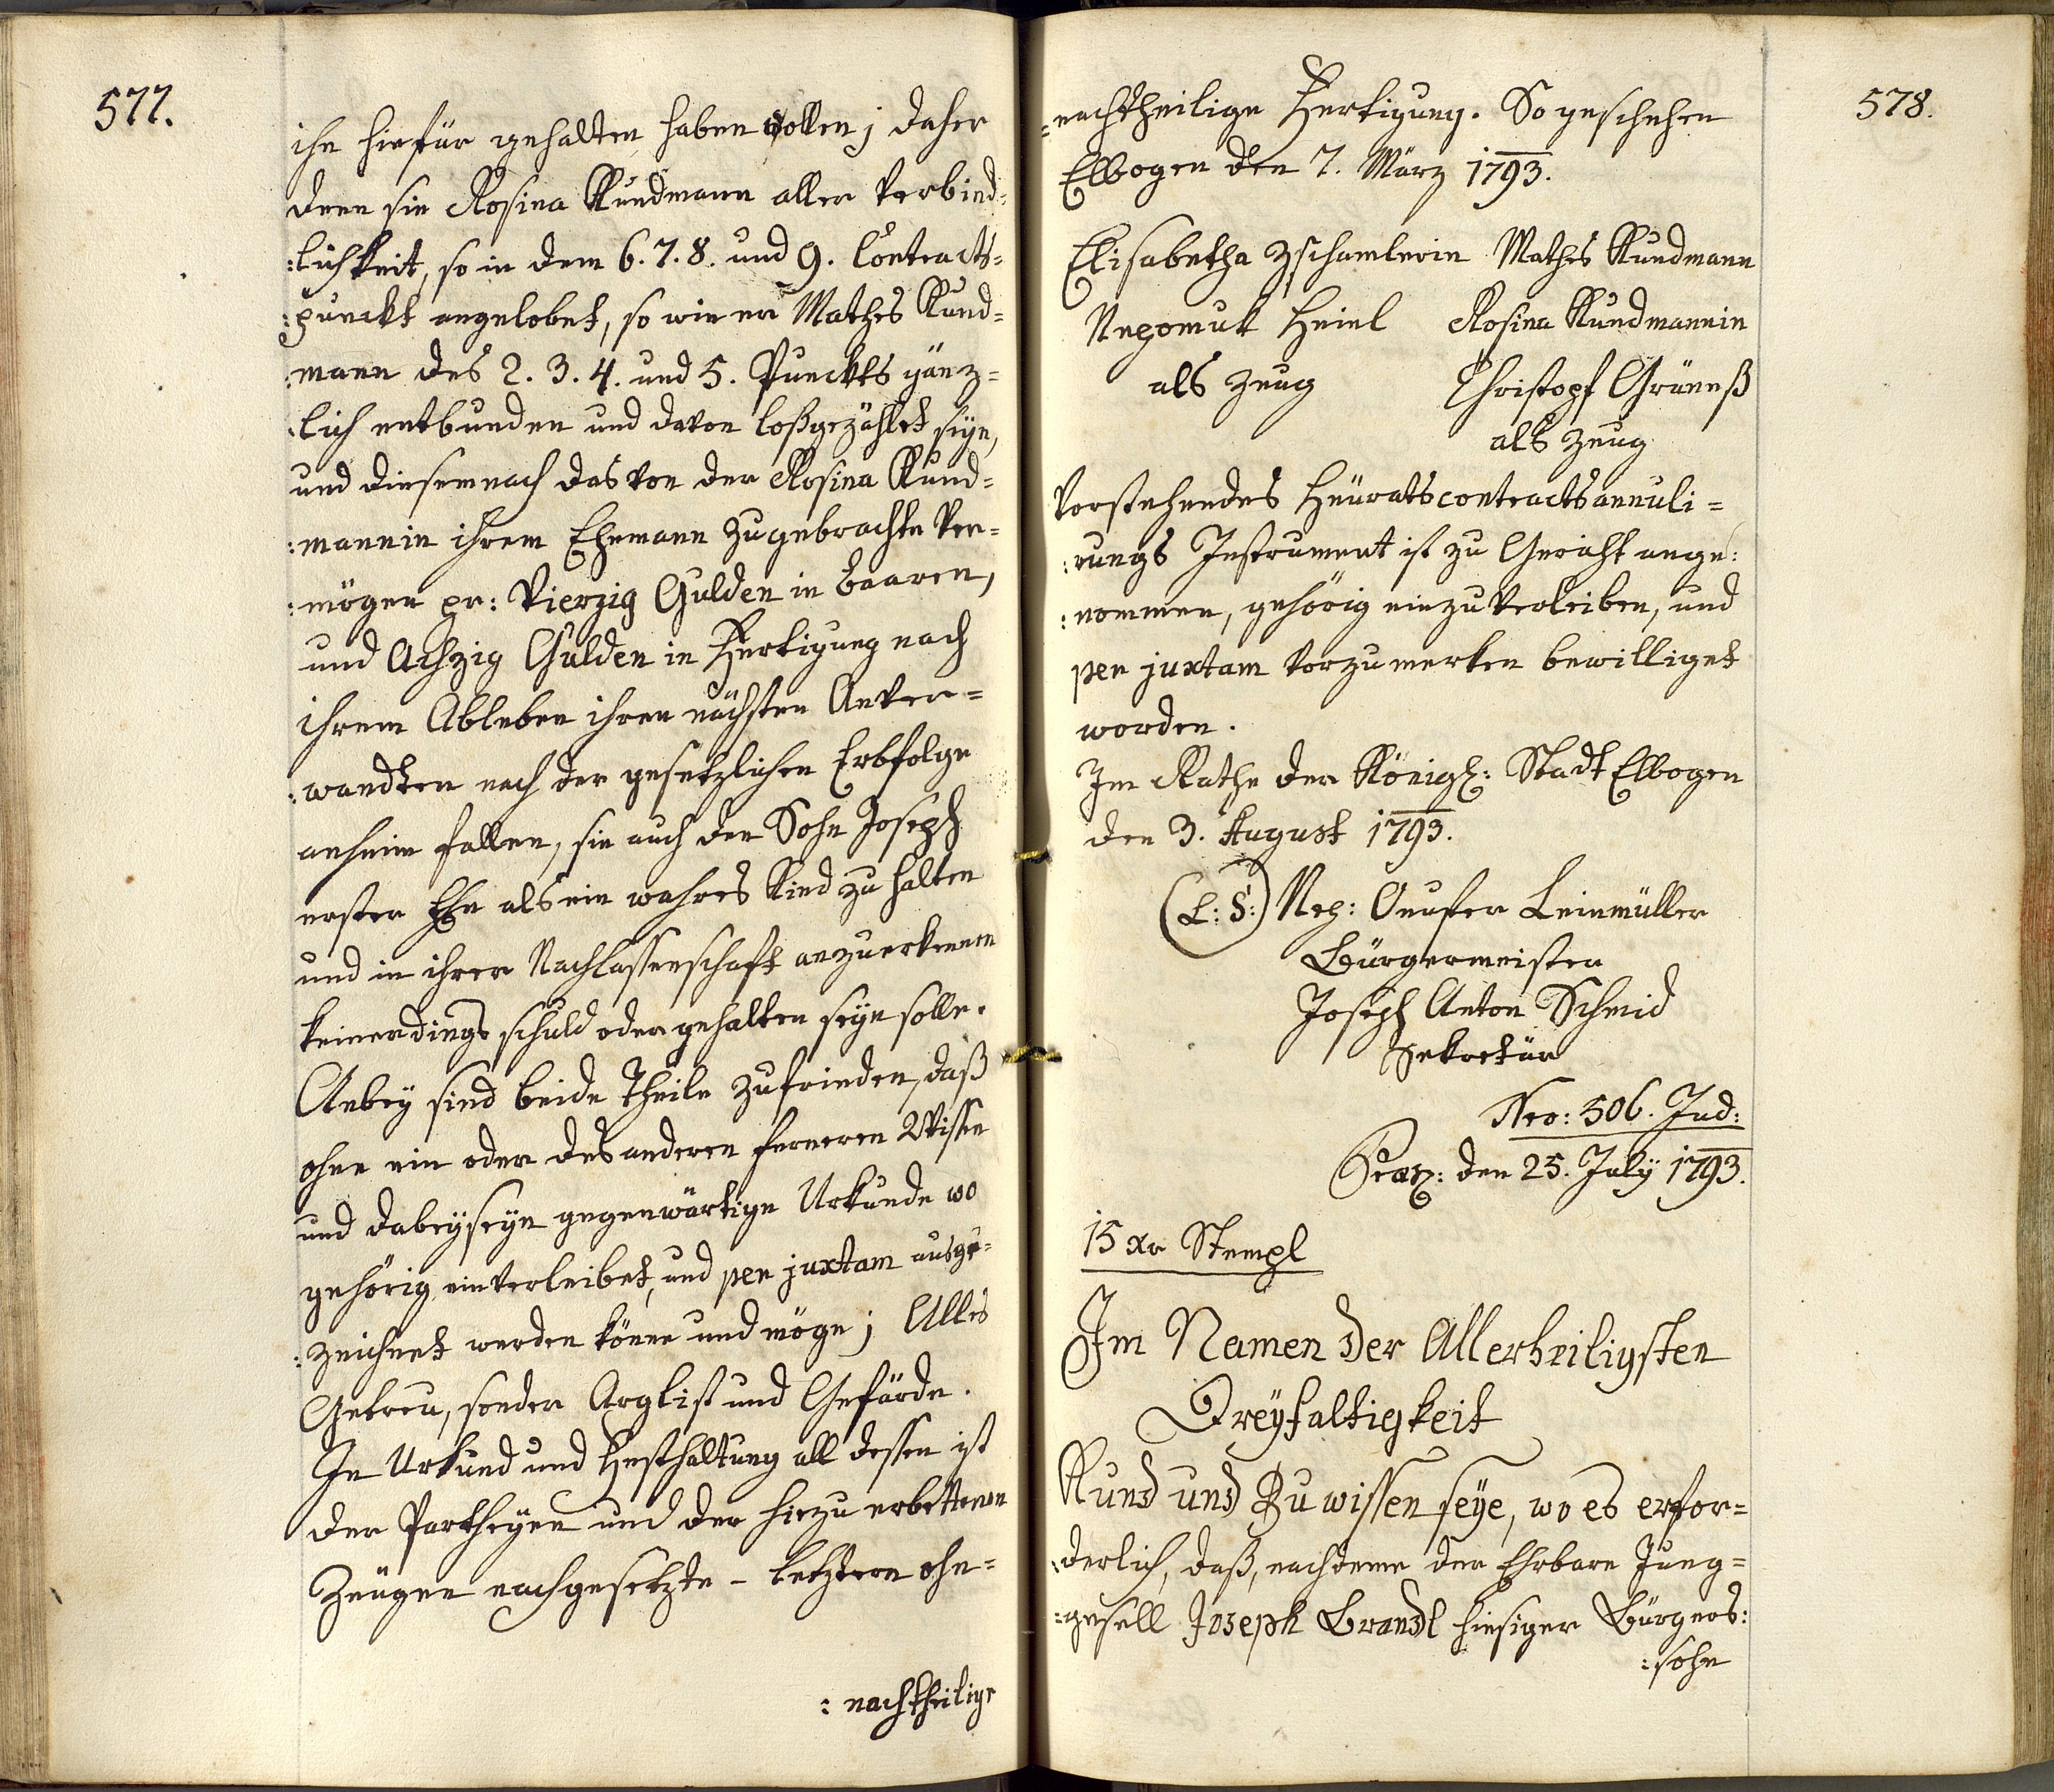 577.
ihn hiefür gehalten haben sollen; daher
denn sie Rosina Kundmann aller Verbind=
:lichkeit, so in dem 6. 7. 8. und 9. Contracts=
:punckt angelobet, so wie er Mathes Kund=
:mann des 2. 3. 4. und 5. Punckts gänz=
:lich entbunden und davon loßgezählet seÿn,
und diesemnach das von der Rosina Kund=
:mannin ihrem Ehemann zugebrachte Ver=
:mögen pr: Vierzig Gulden in baaren,
und Achzig Gulden in Fertigung nach
ihrem Ableben ihren nächsten Anver=
:wandten nach der gesetzlichen Erbfolge
anheim fallen, sie auch den Sohn Joseph
erster Ehe als ein wahres Kind zu halten
und in ihrer Nachlassenschaft anzuerkennen
keinerdings schuld oder gehalten seÿn solle.
Anbeÿ sind beide Theile zufrieden, daß
ohne ein oder des anderen ferneren Wissen
und dabeÿseÿn gegenwärtige Urkunde wo
gehörig einverleibet, und pen juxtam ausge=
:zeichnet werden könne und möge; Alles
Getreu, sonder Arglist und Gefärde.
In Urkund und Festhaltung all dessen ist
der Partheÿen und der hiezu erbettenen
Zeugen nachgesetzte - letztern ohn=
:nachtheilige
578.
=nachtheilige Fertigung. So geschehen
Elbogen den 7. März 1793.
Elisabetha Zschamlerin Mathes Kundmann
Nepomuk Heinl Rosina Kundmannin
als Zeug Christoph Grüneß
als Zeug
Vorstehendes Heüratscontractsannuli=
:rungs Instrument ist zu Gericht ange:
:nommen, gehörig einzuverleiben, und
pen juxtam vorzumerken bewilliget
worden.
Im Rathe der Königl: Stadt Elbogen
den 3. August 1793.
(L: S:) Nep: Onufer Leinmüller
Bürgermeister
Joseph Anton Schmid
Sekretär
Nro: 506. Jud:
Praes: den 25. Julÿ 1793.
15 xr Stempl
Im Namen der Allerheiligsten
Dreÿfaltigkeit
Kund und Zu wissen seÿe, wo es erfor=
:derlich, daß, nachdeme der Ehrbare Jung=
:gesell Joseph Brandl hiesiger Bürgers:
:sohn